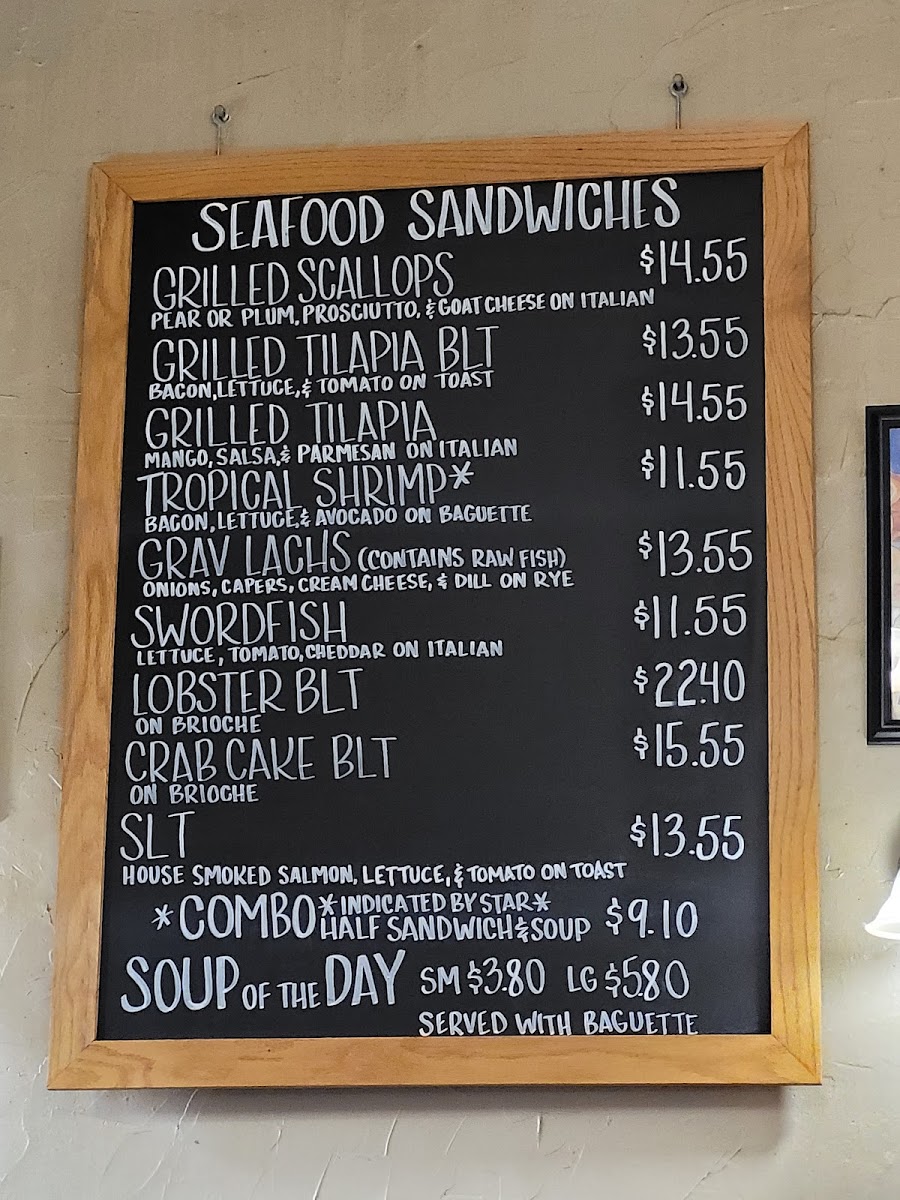 SEAFOOD SANDWICHES
GRILLED SCALLOPS $14.55
PEAR OR PLUM, PROSCIUTTO, & GOAT CHEESE ON ITALIAN
GRILLED TILAPIA BLT $13.55
BACON, LETTUCE, & TOMATO ON TOAST
GRILLED TILAPIA $14.55
MANGO, SALSA, & PARMESAN ON ITALIAN
TROPICAL SHRIMP* $11.55
BACON, LETTUCE, & AVOCADO ON BAGUETTE
GRAV LACHS (CONTAINS RAW FISH) $13.55
ONIONS, CAPERS, CREAM CHEESE, & DILL ON RYE
SWORDFISH $11.55
LETTUCE, TOMATO, CHEDDAR ON ITALIAN
LOBSTER BLT $22.40
ON BRIOCHE
CRAB CAKE BLT $15.55
ON BRIOCHE
SLT $13.55
HOUSE SMOKED SALMON, LETTUCE, & TOMATO ON TOAST
*COMBO *INDICATED BY STAR*
HALF SANDWICH & SOUP $9.10
SOUP OF THE DAY SM $3.80 LG $5.80
SERVED WITH BAGUETTE